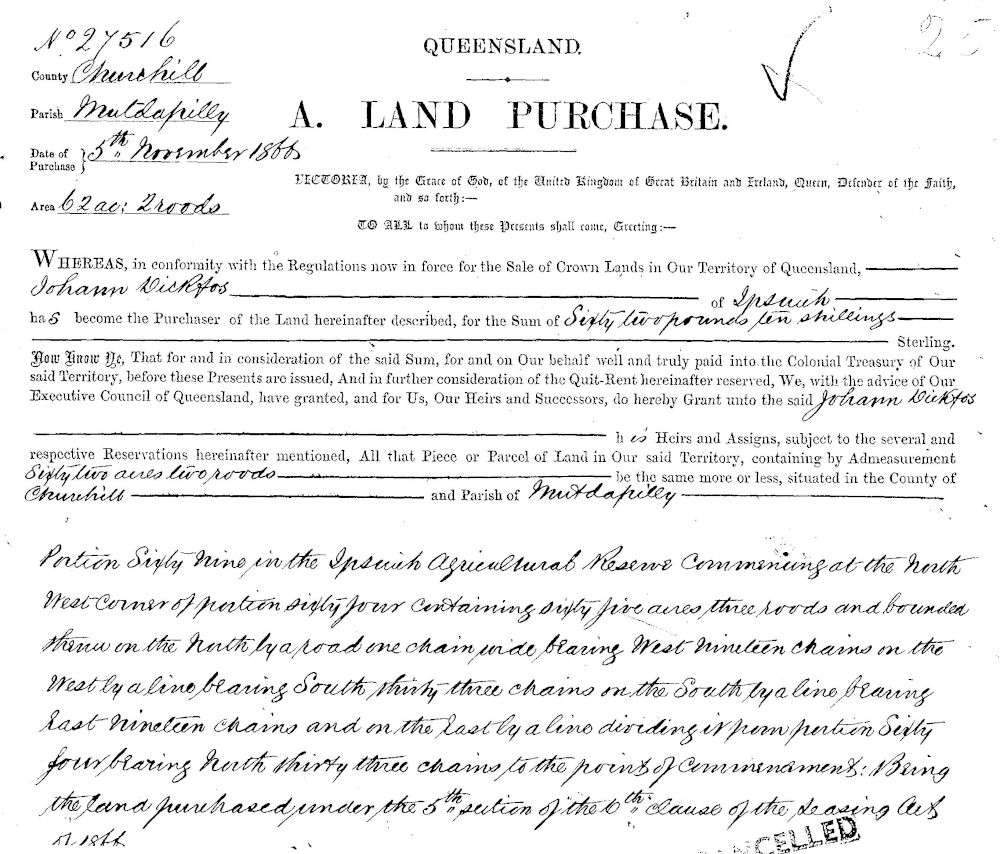 25
No 27516
QUEENSLAND.
County Churchill
A. LAND PURCHASE.
Parish Mutdapilly
Date of Purchase } 5th November 1866
VICTORIA, by the Grace of God, of the United Kingdom of Great Britain and Ireland, Queen, Defender of the Faith,
and so forth:—
Area 62ac: 2roods
TO ALL to whom these Presents shall come, Greeting:—
WHEREAS, in conformity with the Regulations now in force for the Sale of Crown Lands in Our Territory of Queensland,
Johann Dickfos of Ipswich
has become the Purchaser of the Land hereinafter described, for the Sum of Sixty two pounds ten shillings
Sterling.
Now Know Ye, That for and in consideration of the said Sum, for and on Our behalf well and truly paid into the Colonial Treasury of Our
said Territory, before these Presents are issued, And in further consideration of the Quit-Rent hereinafter reserved, We, with the advice of Our
Executive Council of Queensland, have granted, and for Us, Our Heirs and Successors, do hereby Grant unto the said Johann Dickfos
his Heirs and Assigns, subject to the several and
respective Reservations hereinafter mentioned, All that Piece or Parcel of Land in Our said Territory, containing by Admeasurement
Sixty two acres two roods be the same more or less, situated in the County of
Churchill and Parish of Mutdapilly
Portion Sixty Nine in the Ipswich Agricultural Reserve Commencing at the North
West Corner of portion sixty four containing sixty five acres three roods and bounded
thence on the North by a road one chain wide bearing West Nineteen chains on the
West by a line bearing South thirty three chains on the South by a line bearing
East Nineteen chains and on the East by a line dividing it from portion Sixty
four bearing North thirty three chains to the point of Commencement: Being
the land purchased under the 5th section of the 6th clause of the Leasing Act
of 1866
CANCELLED